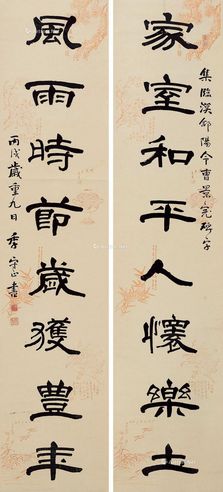 集臨漢郃陽令曹景完碑字
家室和平人懷樂土
風雨時節歲獲豊年
丙戌歲重九日
季守正書